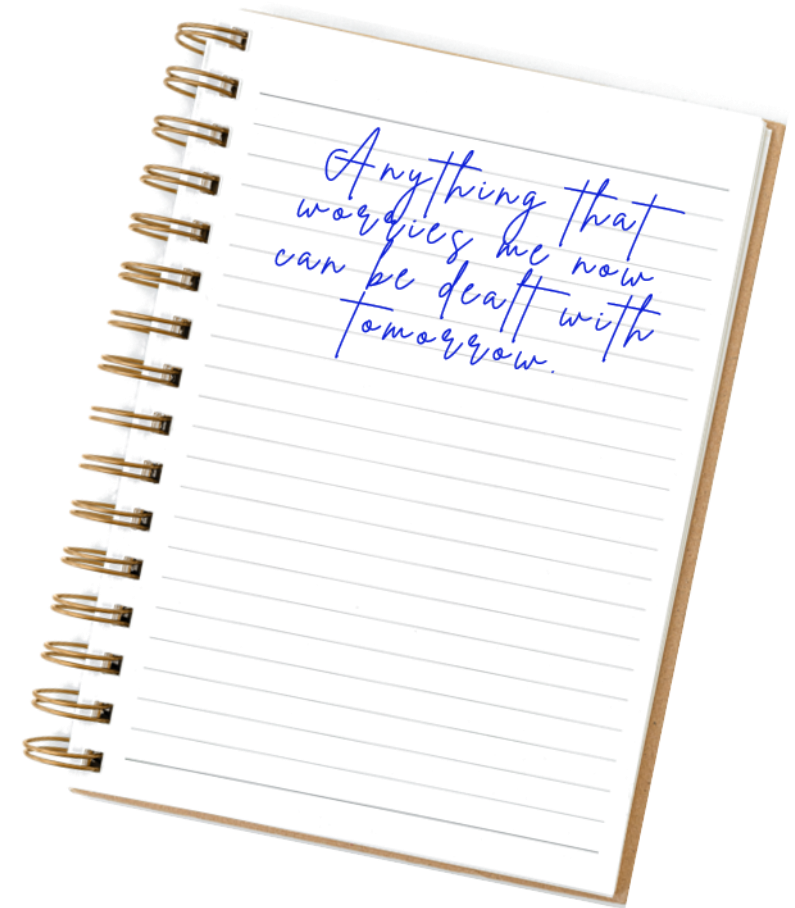 Anything that
worries me now
can be dealt with
tomorrow.